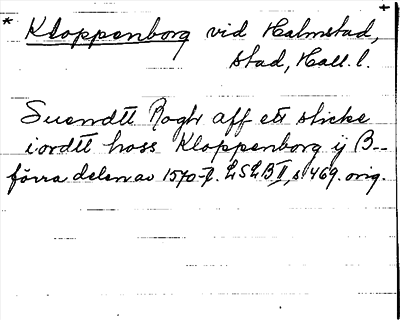 * Kloppenborg vid Halmstad, +
stad, Hall. l.
Suendtt Roghr aff ett sticke
iordtt hoss Kloppenborg ij B--
förra delen av 1570-t. LSLB II, s 469. orig.